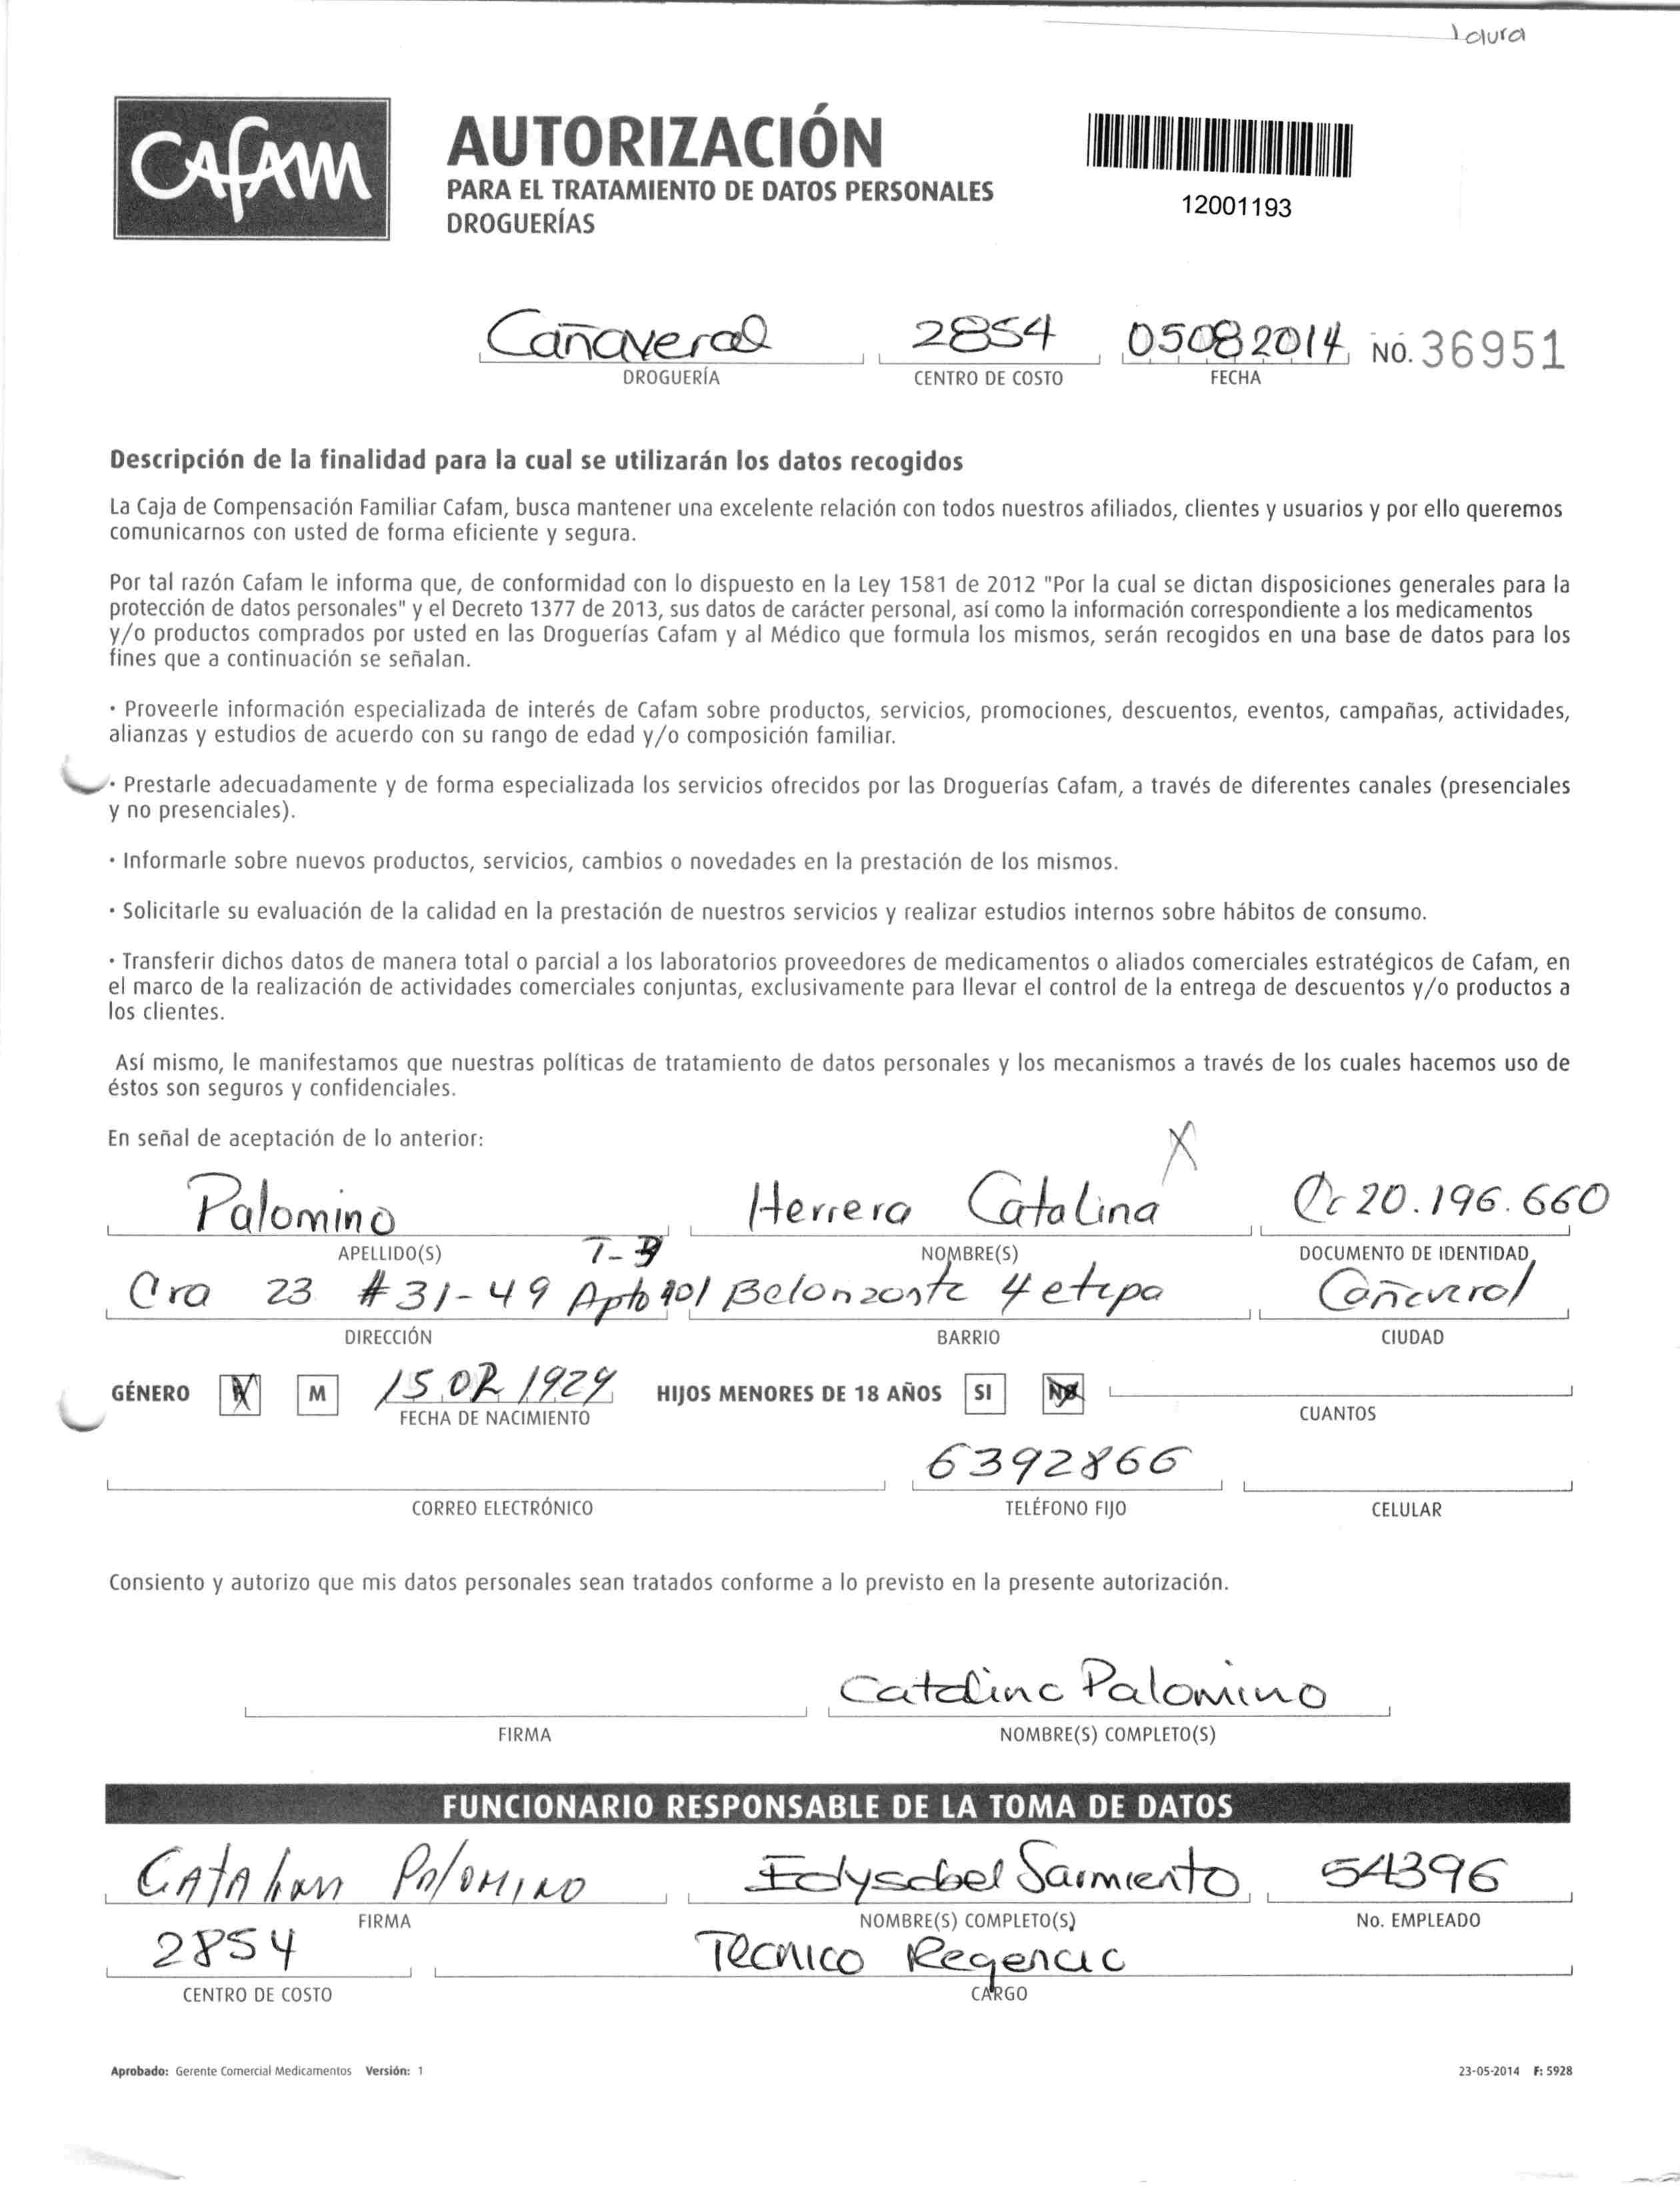 Laura
CAFAM
AUTORIZACIÓN
PARA EL TRATAMIENTO DE DATOS PERSONALES
DROGUERÍAS
12001193
Cañaveral 2854 05082014 NO. 36951
DROGUERÍA CENTRO DE COSTO FECHA
Descripción de la finalidad para la cual se utilizarán los datos recogidos
La Caja de Compensación Familiar Cafam, busca mantener una excelente relación con todos nuestros afiliados, clientes y usuarios y por ello queremos
comunicarnos con usted de forma eficiente y segura.
Por tal razón Cafam le informa que, de conformidad con lo dispuesto en la Ley 1581 de 2012 "Por la cual se dictan disposiciones generales para la
protección de datos personales" y el Decreto 1377 de 2013, sus datos de carácter personal, así como la información correspondiente a los medicamentos
y/o productos comprados por usted en las Droguerías Cafam y al Médico que formula los mismos, serán recogidos en una base de datos para los
fines que a continuación se señalan.
· Proveerle información especializada de interés de Cafam sobre productos, servicios, promociones, descuentos, eventos, campañas, actividades,
alianzas y estudios de acuerdo con su rango de edad y/o composición familiar.
· Prestarle adecuadamente y de forma especializada los servicios ofrecidos por las Droguerías Cafam, a través de diferentes canales (presenciales
y no presenciales).
· Informarle sobre nuevos productos, servicios, cambios o novedades en la prestación de los mismos.
· Solicitarle su evaluación de la calidad en la prestación de nuestros servicios y realizar estudios internos sobre hábitos de consumo.
· Transferir dichos datos de manera total o parcial a los laboratorios proveedores de medicamentos o aliados comerciales estratégicos de Cafam, en
el marco de la realización de actividades comerciales conjuntas, exclusivamente para llevar el control de la entrega de descuentos y/o productos a
los clientes.
Así mismo, le manifestamos que nuestras políticas de tratamiento de datos personales y los mecanismos a través de los cuales hacemos uso de
éstos son seguros y confidenciales.
En señal de aceptación de lo anterior: X
Palomino Herrera Catalina Cc 20.196.660
APELLIDO(S) NOMBRE(S) DOCUMENTO DE IDENTIDAD
Cra 23 # 31-49 Apto 401 Belonzonte 4 etapa Cañaveral
DIRECCIÓN BARRIO CIUDAD
GÉNERO M 15 02 1929 HIJOS MENORES DE 18 AÑOS SI NO
FECHA DE NACIMIENTO CUANTOS
6392866
CORREO ELECTRÓNICO TELÉFONO FIJO CELULAR
Consiento y autorizo que mis datos personales sean tratados conforme a lo previsto en la presente autorización.
Catalina Palomino
FIRMA NOMBRE(S) COMPLETO(S)
FUNCIONARIO RESPONSABLE DE LA TOMA DE DATOS
Palomino Edysabel Sarmiento 54396
FIRMA NOMBRE(S) COMPLETO(S) No. EMPLEADO
2854 Tecnico Regencia
CENTRO DE COSTO CARGO
Aprobado: Gerente Comercial Medicamentos Versión: 1 23-05-2014 F: 5928